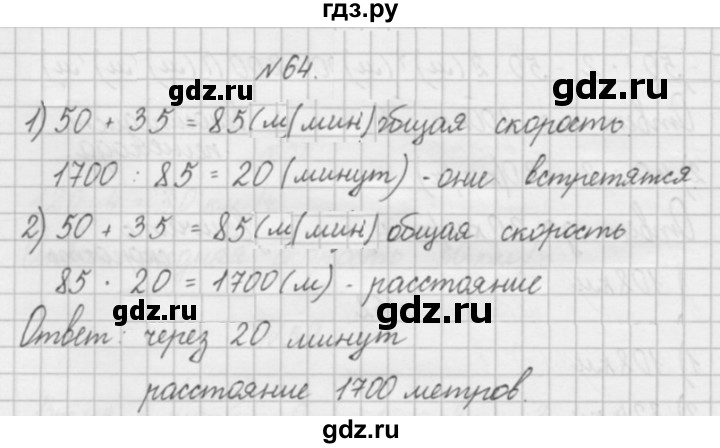 гдз.ру
№64.
gdz.ru gdz.ru
1) 50 + 35 = 85(м/мин) общая скорость
1700 : 85 = 20 (минут) - они встретятся
2) 50 + 35 = 85(м/мин) общая скорость
gdz.ru gdz.ru
85 · 20 = 1700(м) - расстояние
gdz.ru gdz.ru
Ответ: через 20 минут
расстояние 1700 метров.